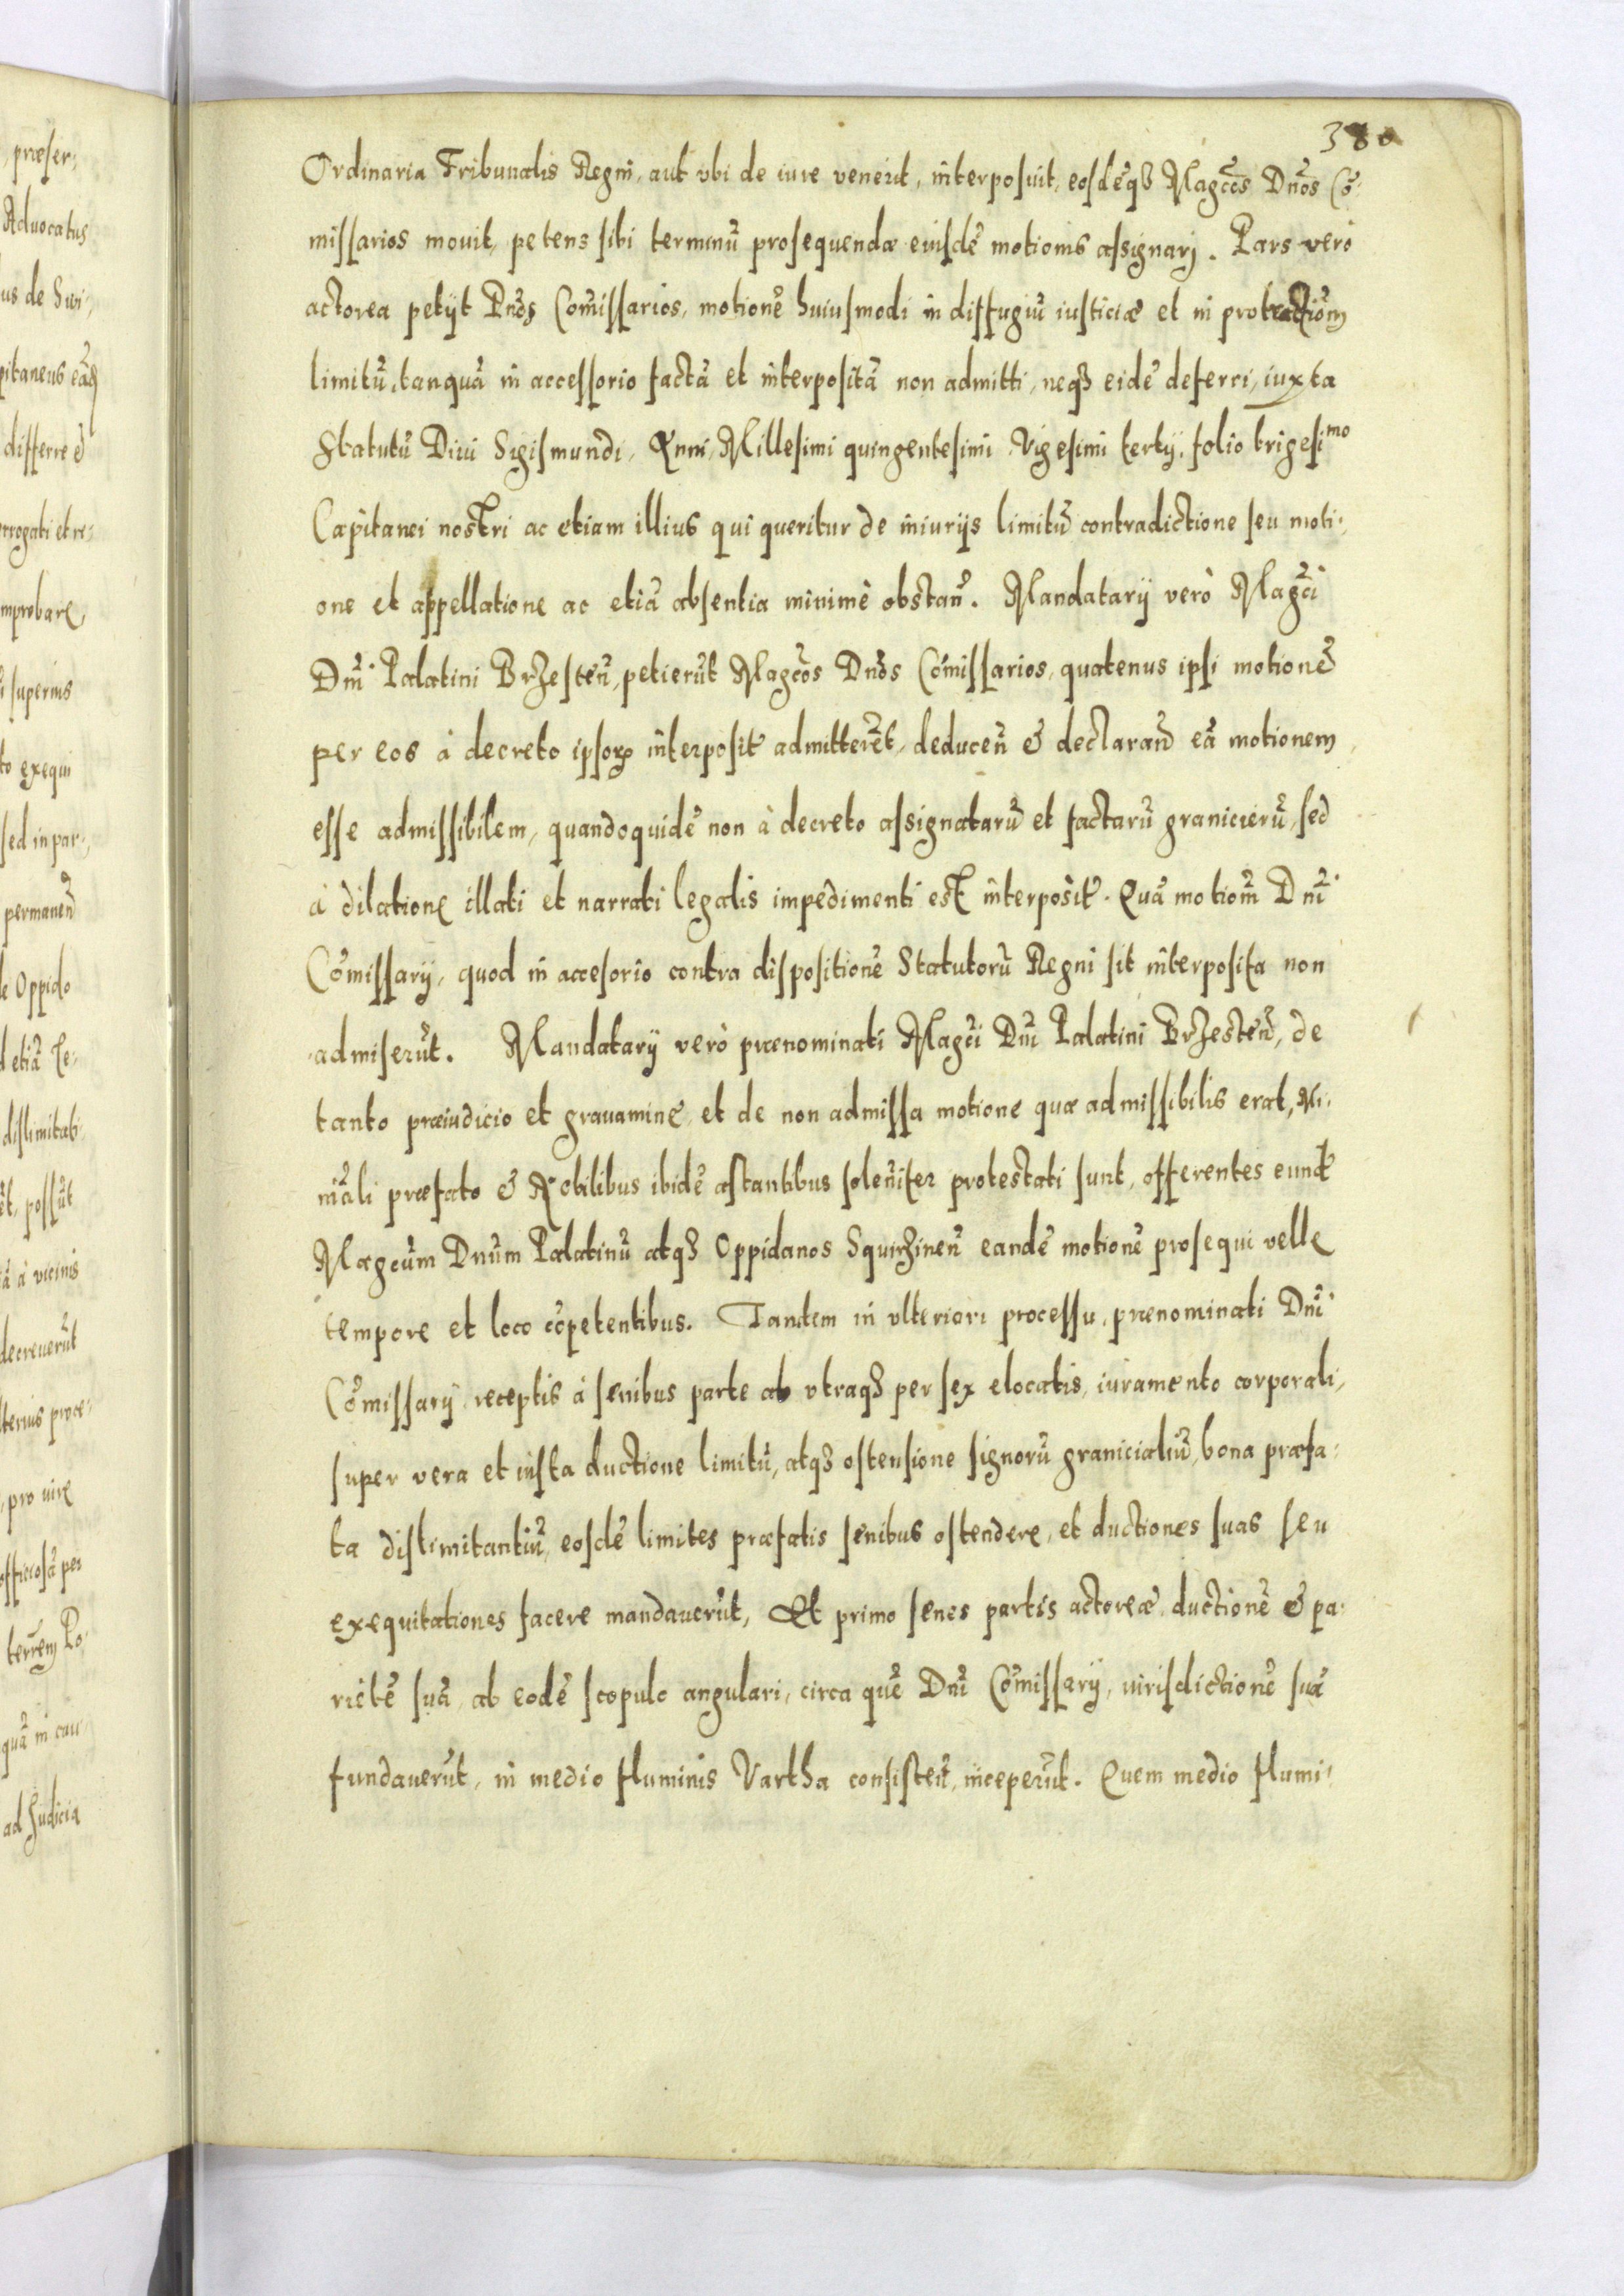 380
Ordinaria Tribunalis Regni, aut vbi de iure venerit, interposuit, eosdēq̃ Magc̃os Dños Cõ-
missarios mouit, petens sibi terminũ prosequendæ eiusdẽ motionis assignarj. Pars verò
actorea petijt Dños Cõmissarios, motionẽ huiusmodi in diffugiũ iusticiæ et in protractiõm
limitũ, tanquã in accessorio factã et interpositã non admitti, neq̃ eidẽ deferri, iuxta
Statutũ Diui Sigismundi, Anni, Millesimi quingentesimi Vigesimi tertij, folio trigesimo
Capitanei nostri ac etiam illius qui queritur de iniurijs limitũ contradictione seu moti-
one et appellatione ac etiã absentia minimè obstañ. Mandatarij verò Magc̃i
Dñi Palatini Brzesteñ, petierũt Magc̃os Dños Cõmissarios, quatenus ipsi motionẽ
per eos à decreto ipsoꝝ interposit̃ admitterẽt, deduceñ & declarañ eã motionem
esse admissibilem, quandoquidẽ non à decreto assignatarũ et factarũ granicierũ, sed
à dilatione illati et narrati legalis impedimenti est interposit̃. Quã motioñ Dñi
Cõmissarij, quod in accesorio contra dispositionẽ Statutorũ Regni sit interposita non
admiserũt. Mandatarij verò prænominati Magc̃i Dñi Palatini Brzesteñ, de
tanto præiudicio et grauamine, et de non admissa motione quæ admissibilis erat, Mi-
niãli præfato & Nobilibus ibidẽ astantibus soleñiter protestati sunt, offerentes eund̃
Magc̃um Dñum Palatinũ atq̃ Oppidanos Squirzineñ eandẽ motionẽ prosequi velle
tempore et loco cõpetentibus. Tandem in vlteriori processu, prænominati Dñi
Cõmissarij receptis à senibus parte ab vtraq̃ per sex elocatis, iuramento corporali,
super vera et iusta ductione limitũ, atq̃ ostensione signorũ granicialiũ, bona præfa-
ta dislimitantiũ, eosdẽ limites præfatis senibus ostendere, et ductiones suas seu
exequitationes facere mandauerũt, Et primo senes partis actoreæ, ductionẽ & pa-
rietẽ suã, ab eodẽ scopulo angulari, circa quẽ Dñi Cõmissarij, iurisdictionẽ suã
fundauerũt, in medio fluminis Vartha consisteñ, inceperũt. Quem medio flumi-